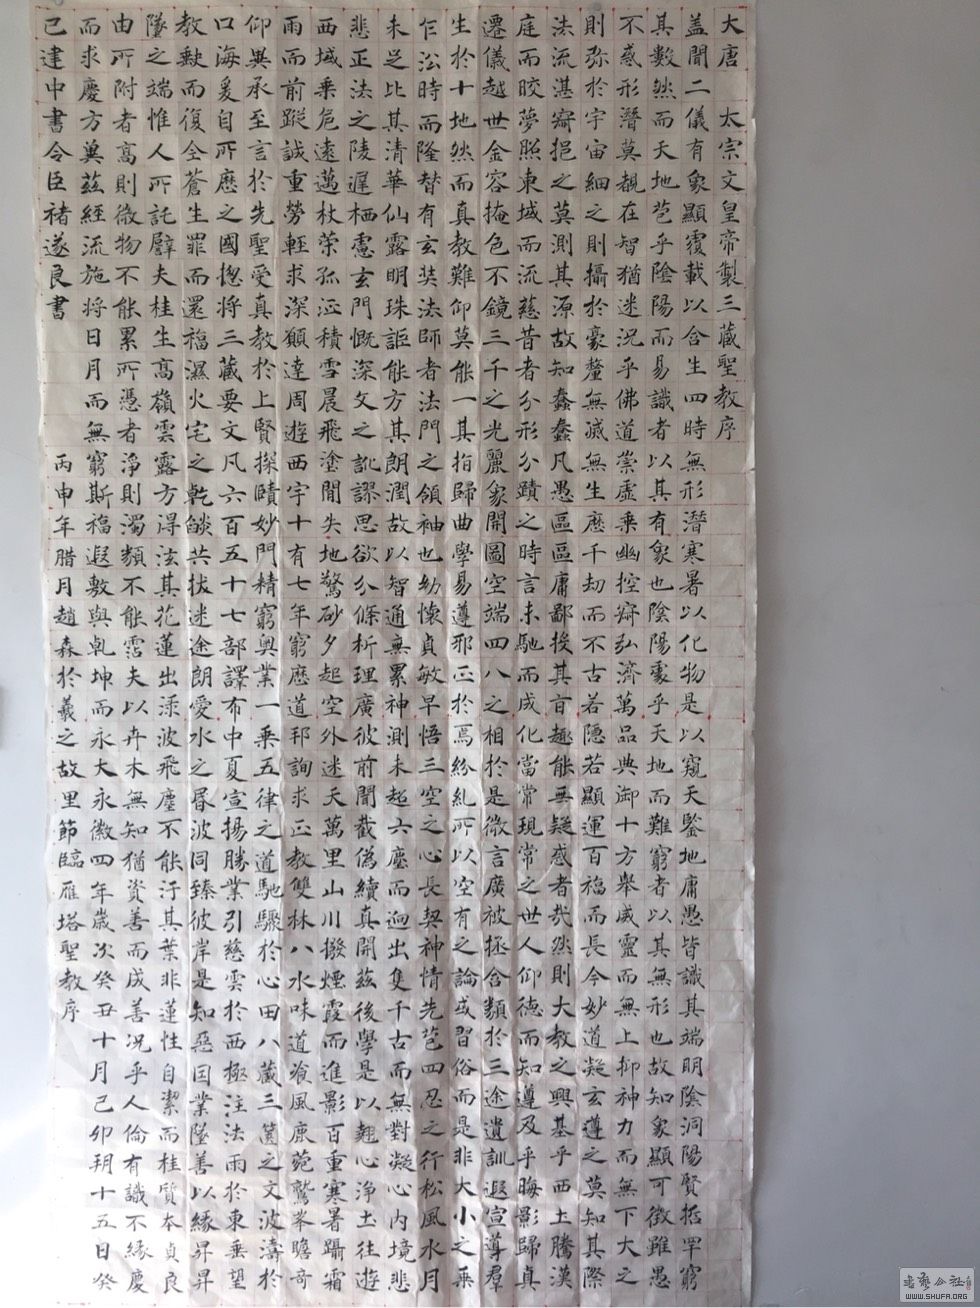 大唐　太宗文皇帝製三藏聖教序
盖聞二儀有象顯覆載以含生四時無形潛寒暑以化物是以窺天鑒地庸愚皆識其端明陰洞陽賢哲罕窮
其數然而天地苞乎陰陽而易識者以其有象也陰陽處乎天地而難窮者以其無形也故知象顯可徵雖愚
不惑形潛莫覩在智猶迷況乎佛道崇虛乘幽控寂弘濟萬品典御十方舉威靈而無上抑神力而無下大之
則弥於宇宙細之則攝於豪釐無滅無生歷千劫而不古若隱若顯運百福而長今妙道凝玄遵之莫知其際
法流湛寂挹之莫測其源故知蠢蠢凡愚區區庸鄙投其旨趣能無疑惑者哉然則大教之興基乎西土騰漢
庭而皎夢照東域而流慈昔者分形分蹟之時言未馳而成化當常現常之世人仰德而知遵及乎晦影歸真
遷儀越世金容掩色不鏡三千之光麗象開圖空端四八之相於是微言廣被拯含類於三途遺訓遐宣導羣
生於十地然而真教難仰莫能一其指歸曲學易遵邪正於焉紛糺所以空有之論或習俗而是非大小之乘
乍沿時而隆替有玄奘法師者法門之領袖也幼懷貞敏早悟三空之心長契神情先苞四忍之行松風水月
未足比其清華仙露明珠詎能方其朗潤故以智通無累神測未形超六塵而迥出隻千古而無對凝心內境悲
悲正法之陵遲栖慮玄門慨深文之訛謬思欲分條析理廣彼前聞截偽續真開茲後學是以翹心淨土往遊
西域乘危遠邁杖策孤征積雪晨飛塗間失地驚砂夕起空外迷天萬里山川撥煙霞而進影百重寒暑躡霜
雨而前蹤誠重勞輕求深願達周遊西宇十有七年窮歷道邦詢求正教雙林八水味道飡風鹿菀鷲峯瞻奇
仰異承至言於先聖受真教於上賢探賾妙門精窮奧業一乘五律之道馳驟於心田八藏三篋之文波濤於
口海爰自所歷之國揔將三藏要文凡六百五十七部譯布中夏宣揚勝業引慈雲於西極注法雨於東垂望
教缺而復全蒼生罪而還福濕火宅之乾燄共拔迷途朗愛水之昏波同臻彼岸是知惡因業墜善以緣昇昇
墜之端惟人所託譬夫桂生高嶺雲露方得泫其花蓮出淥波飛塵不能汙其葉非蓮性自潔而桂質本貞良
由所附者高則微物不能累所憑者淨則濁類不能霑夫以卉木無知猶資善而成善況乎人倫有識不緣慶
而求慶方冀茲經流施將日月而無窮斯福遐敷與乾坤而永大永徽四年歲次癸丑十月己卯朔十五日癸
已建中書令臣褚遂良書　丙申年腊月趙森於羲之故里節臨雁塔聖教序
書藝公社
WWW.SHUFA.ORG